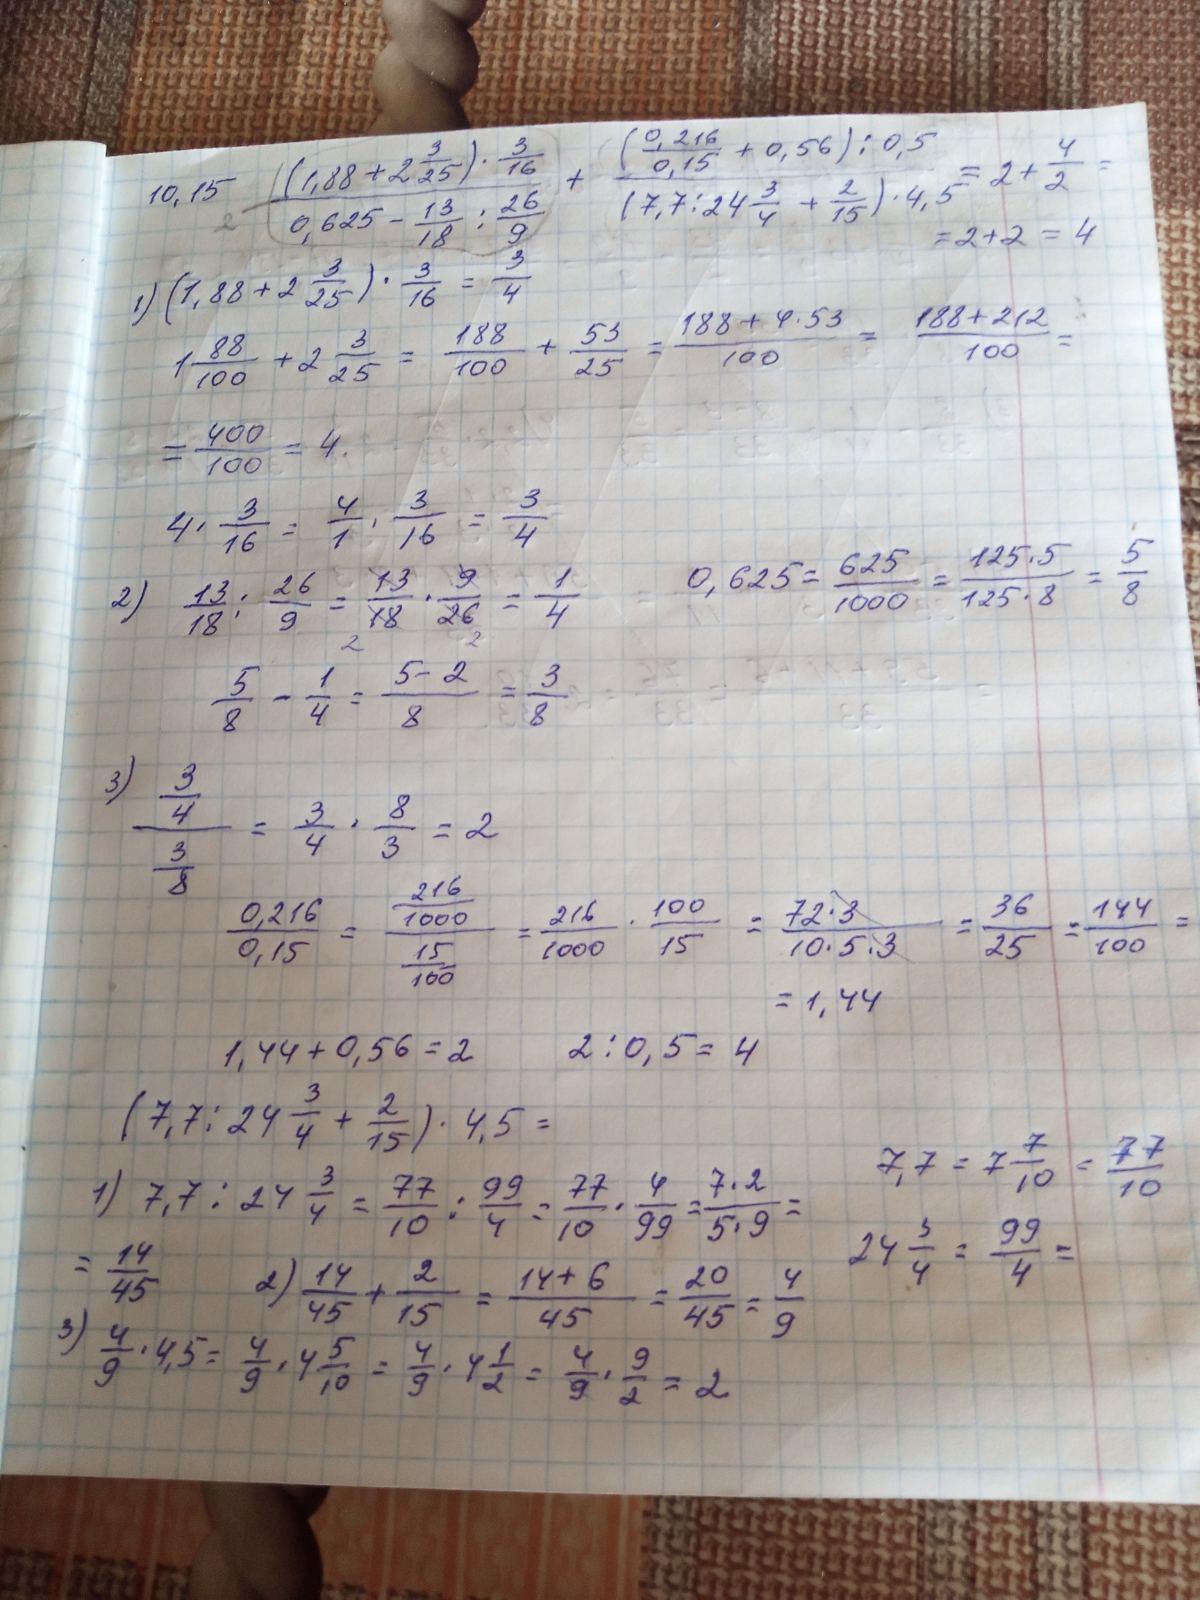 10,15 ((1,88 + 2 3/25) · 3/16) / (0,625 - 13/18 : 26/9) + ((0,216/0,15 + 0,56) : 0,5) / ((7,7 : 24 3/4 + 2/15) · 4,5) = 2 + 4/2 =
2
= 2+2 = 4
1) (1,88 + 2 3/25) · 3/16 = 3/4
1 88/100 + 2 3/25 = 188/100 + 53/25 = (188 + 4·53)/100 = (188+212)/100 =
= 400/100 = 4.
4 · 3/16 = 4/1 · 3/16 = 3/4
2) 13/18 : 26/9 = 13/18 · 9/26 = 1/4 0,625 = 625/1000 = (125·5)/(125·8) = 5/8
2 2
5/8 - 1/4 = (5-2)/8 = 3/8
3) (3/4)/(3/8) = 3/4 · 8/3 = 2
0,216/0,15 = (216/1000)/(15/100) = 216/1000 · 100/15 = (72·3)/(10·5·3) = 36/25 = 144/100 =
= 1,44
1,44 + 0,56 = 2 2 : 0,5 = 4
(7,7 : 24 3/4 + 2/15) · 4,5 =
7,7 = 7 7/10 = 77/10
1) 7,7 : 24 3/4 = 77/10 : 99/4 = 77/10 · 4/99 = (7·2)/(5·9) =
24 3/4 = 99/4 =
= 14/45 2) 14/45 + 2/15 = (14+6)/45 = 20/45 = 4/9
3) 4/9 · 4,5 = 4/9 · 4 5/10 = 4/9 · 4 1/2 = 4/9 · 9/2 = 2